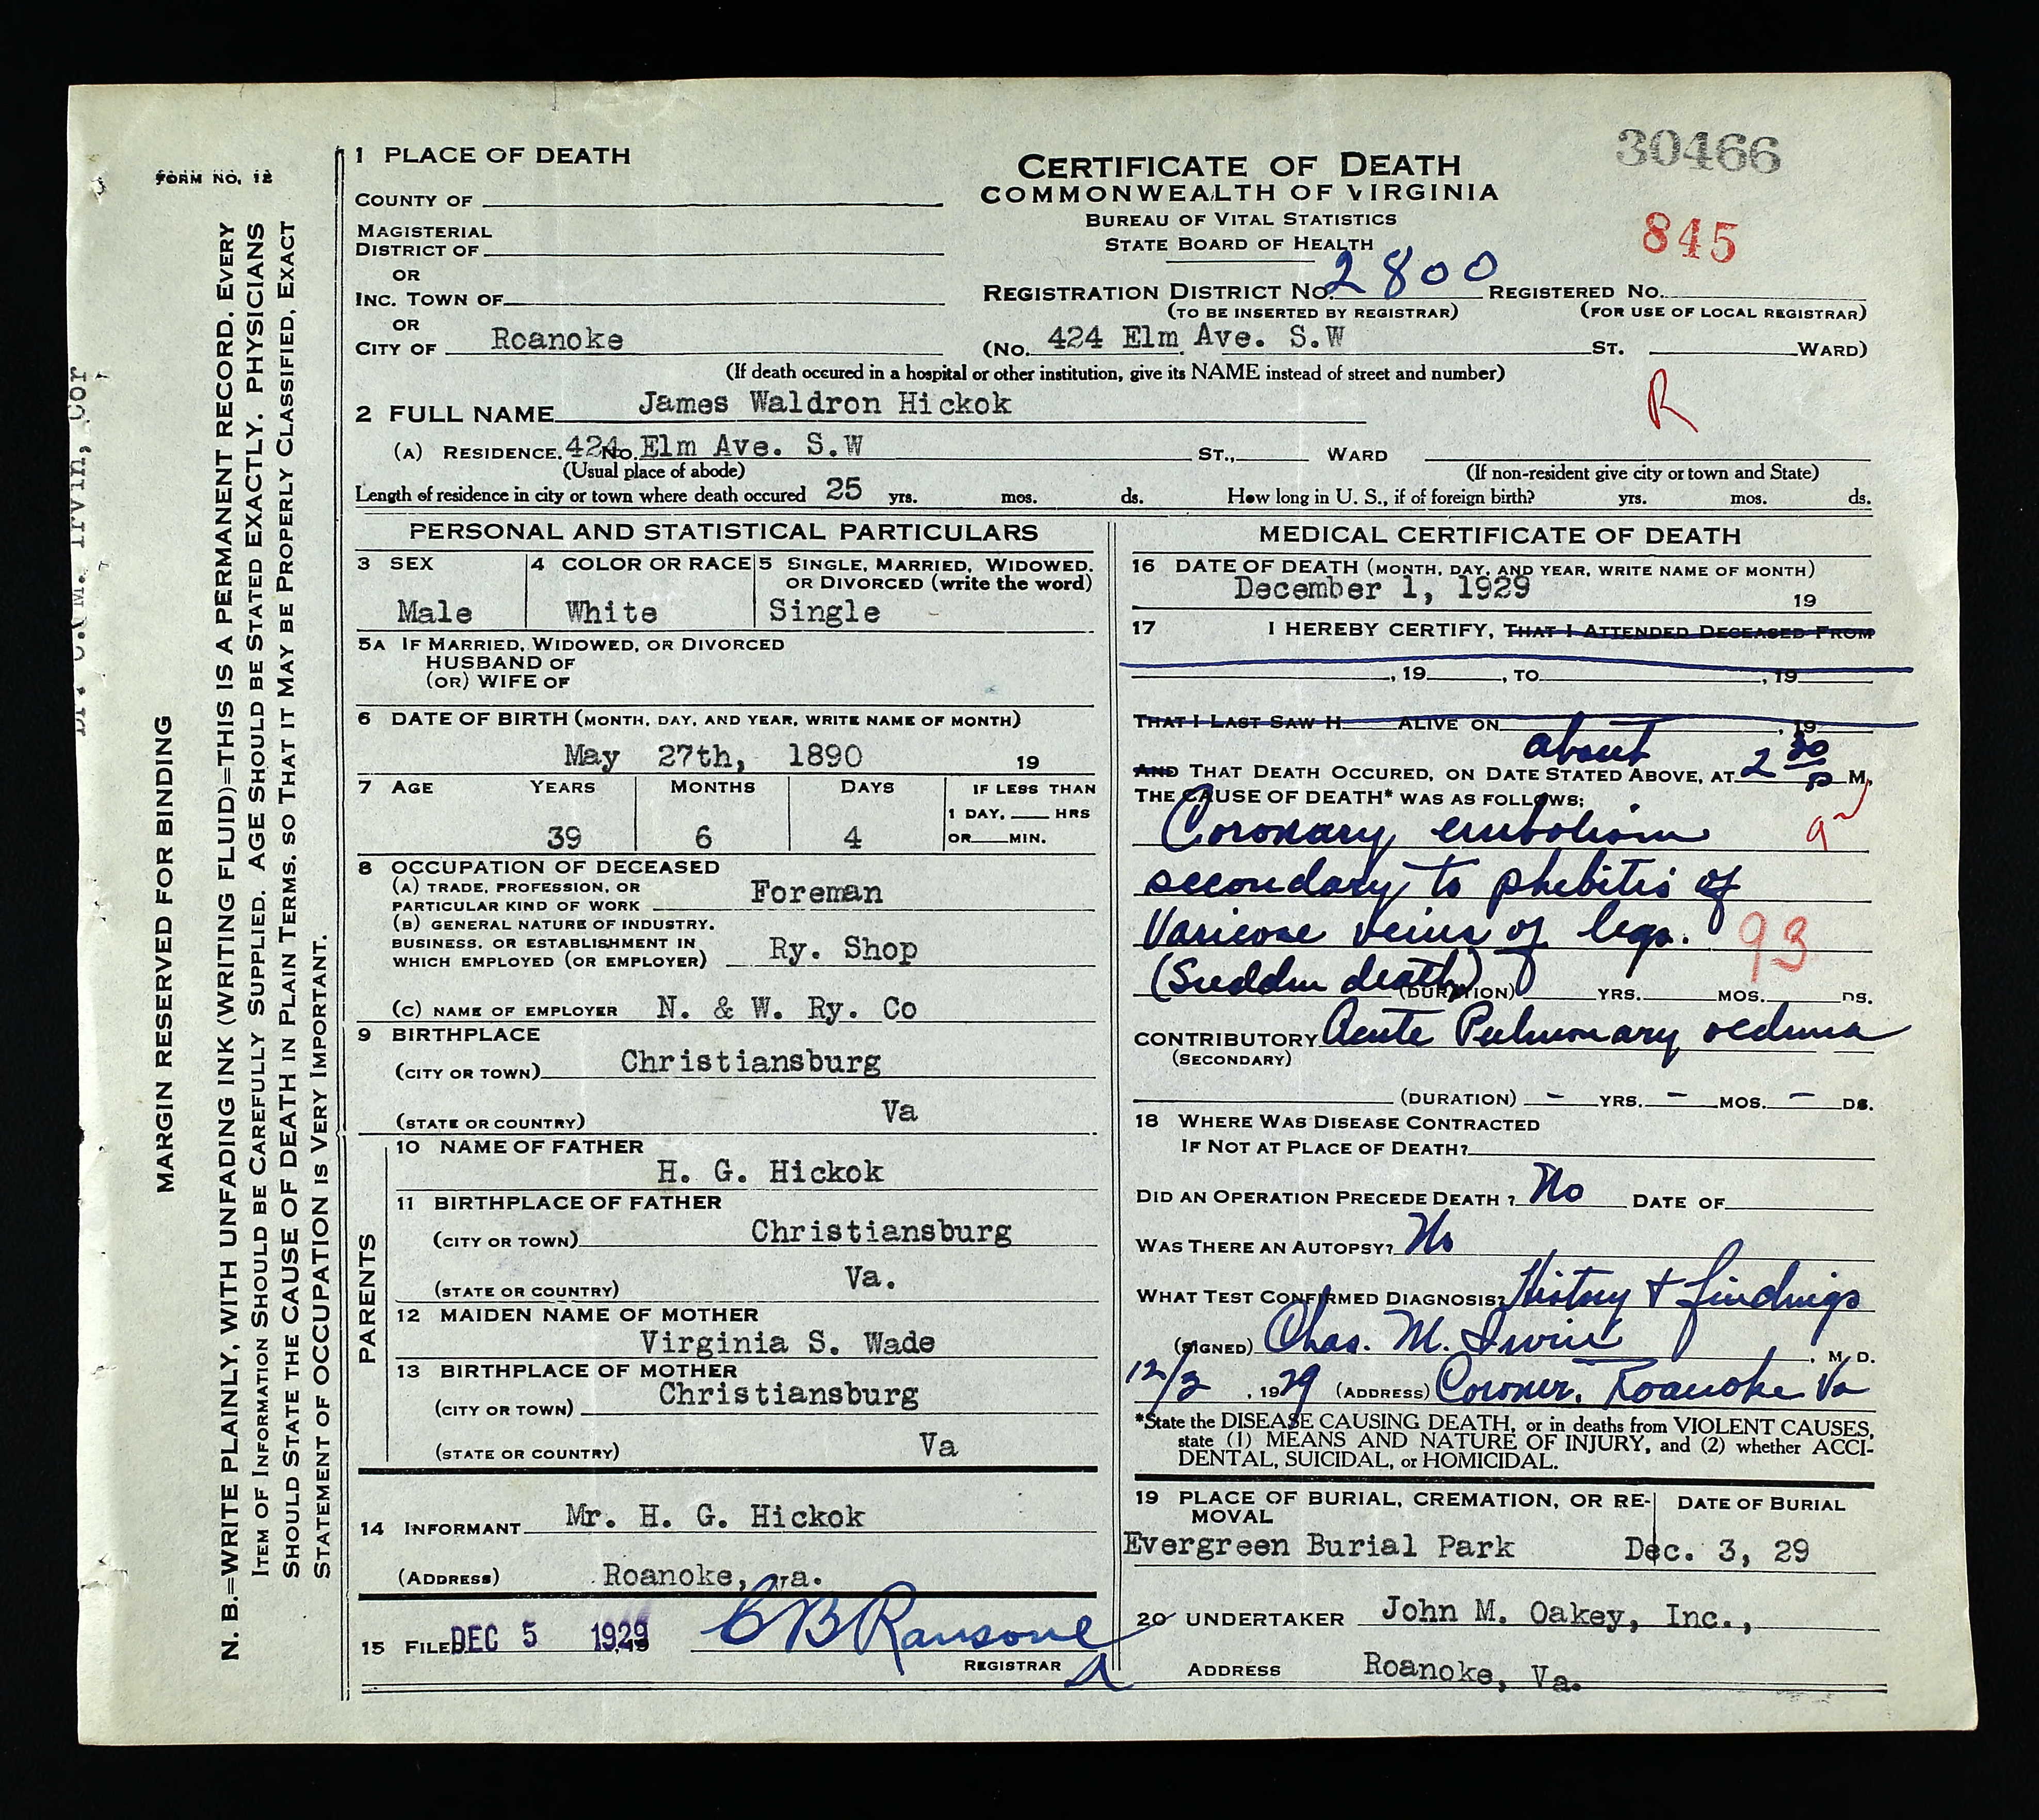 30466
845
FORM NO. 12
MARGIN RESERVED FOR BINDING
N. B.=WRITE PLAINLY, WITH UNFADING INK (WRITING FLUID)=THIS IS A PERMANENT RECORD. EVERY
ITEM OF INFORMATION SHOULD BE CAREFULLY SUPPLIED. AGE SHOULD BE STATED EXACTLY. PHYSICIANS
SHOULD STATE THE CAUSE OF DEATH IN PLAIN TERMS. SO THAT IT MAY BE PROPERLY CLASSIFIED, EXACT
STATEMENT OF OCCUPATION IS VERY IMPORTANT.
M. Irvin, Cor
CERTIFICATE OF DEATH
COMMONWEALTH OF VIRGINIA
BUREAU OF VITAL STATISTICS
STATE BOARD OF HEALTH
1 PLACE OF DEATH
COUNTY OF
MAGISTERIAL
DISTRICT OF
OR
INC. TOWN OF
OR
CITY OF Roanoke
REGISTRATION DISTRICT NO. 2800 REGISTERED NO.
(TO BE INSERTED BY REGISTRAR) (FOR USE OF LOCAL REGISTRAR)
(NO. 424 Elm Ave. S.W ST. WARD)
(If death occured in a hospital or other institution, give its NAME instead of street and number)
2 FULL NAME James Waldron Hickok
R
(A) RESIDENCE. 424 No. Elm Ave. S.W ST., WARD
(Usual place of abode) (If non-resident give city or town and State)
Length of residence in city or town where death occured 25 yrs. mos. ds. How long in U. S., if of foreign birth? yrs. mos. ds.
PERSONAL AND STATISTICAL PARTICULARS
3 SEX 4 COLOR OR RACE 5 SINGLE, MARRIED, WIDOWED.
OR DIVORCED (write the word)
Male White Single
5A IF MARRIED, WIDOWED, OR DIVORCED
HUSBAND OF
(OR) WIFE OF
6 DATE OF BIRTH (MONTH, DAY, AND YEAR, WRITE NAME OF MONTH)
May 27th, 1890 19
7 AGE YEARS MONTHS DAYS IF LESS THAN
1 DAY, HRS
39 6 4 OR MIN.
8 OCCUPATION OF DECEASED
(A) TRADE, PROFESSION, OR
PARTICULAR KIND OF WORK Foreman
(B) GENERAL NATURE OF INDUSTRY.
BUSINESS, OR ESTABLISHMENT IN
WHICH EMPLOYED (OR EMPLOYER) Ry. Shop
(C) NAME OF EMPLOYER N. & W. Ry. Co
9 BIRTHPLACE
(CITY OR TOWN) Christiansburg
(STATE OR COUNTRY) Va
PARENTS
10 NAME OF FATHER
H. G. Hickok
11 BIRTHPLACE OF FATHER
(CITY OR TOWN) Christiansburg
(STATE OR COUNTRY) Va.
12 MAIDEN NAME OF MOTHER
Virginia S. Wade
13 BIRTHPLACE OF MOTHER
(CITY OR TOWN) Christiansburg
(STATE OR COUNTRY) Va
14 INFORMANT Mr. H. G. Hickok
(ADDRESS) Roanoke, Va.
15 FILED DEC 5 1929 C B Ransone
REGISTRAR
MEDICAL CERTIFICATE OF DEATH
16 DATE OF DEATH (MONTH, DAY, AND YEAR, WRITE NAME OF MONTH)
December 1, 1929 19
17 I HEREBY CERTIFY, THAT I ATTENDED DECEASED FROM
, 19 , TO , 19
THAT I LAST SAW H ALIVE ON , 19
about
AND THAT DEATH OCCURED, ON DATE STATED ABOVE, AT 2 30 P M,
THE CAUSE OF DEATH* WAS AS FOLLOWS:
Coronary embolism
secondary to phebitis of
Varicose veins of legs. 93
(Sudden death) (DURATION) YRS. MOS. DS.
CONTRIBUTORY Acute Pulmonary oedema
(SECONDARY)
(DURATION) - YRS. - MOS. - DS.
18 WHERE WAS DISEASE CONTRACTED
IF NOT AT PLACE OF DEATH?
DID AN OPERATION PRECEDE DEATH? No DATE OF
WAS THERE AN AUTOPSY? No
WHAT TEST CONFIRMED DIAGNOSIS? History + findings
(SIGNED) Chas. M. Irvin , M. D.
12/3, 1929 (ADDRESS) Coroner. Roanoke Va
*State the DISEASE CAUSING DEATH, or in deaths from VIOLENT CAUSES,
state (1) MEANS AND NATURE OF INJURY, and (2) whether ACCI-
DENTAL, SUICIDAL, or HOMICIDAL.
19 PLACE OF BURIAL, CREMATION, OR RE- DATE OF BURIAL
MOVAL
Evergreen Burial Park Dec. 3, 29
20 UNDERTAKER John M. Oakey, Inc.,
ADDRESS Roanoke, Va.